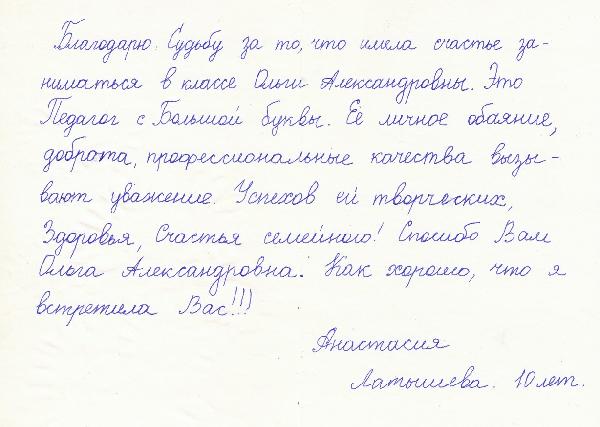 Благодарю Судьбу за то, что имела счастье за-
ниматься в классе Ольги Александровны. Это
Педагог с Большой буквы. Её личное обаяние,
доброта, профессиональные качества вызы-
вают уважение. Успехов ей творческих,
Здоровья, Счастья семейного! Спосибо Вам
Ольга Александровна. Как хорошо, что я
встретила Вас!!!
Анастасия
Латышева. 10 лет.